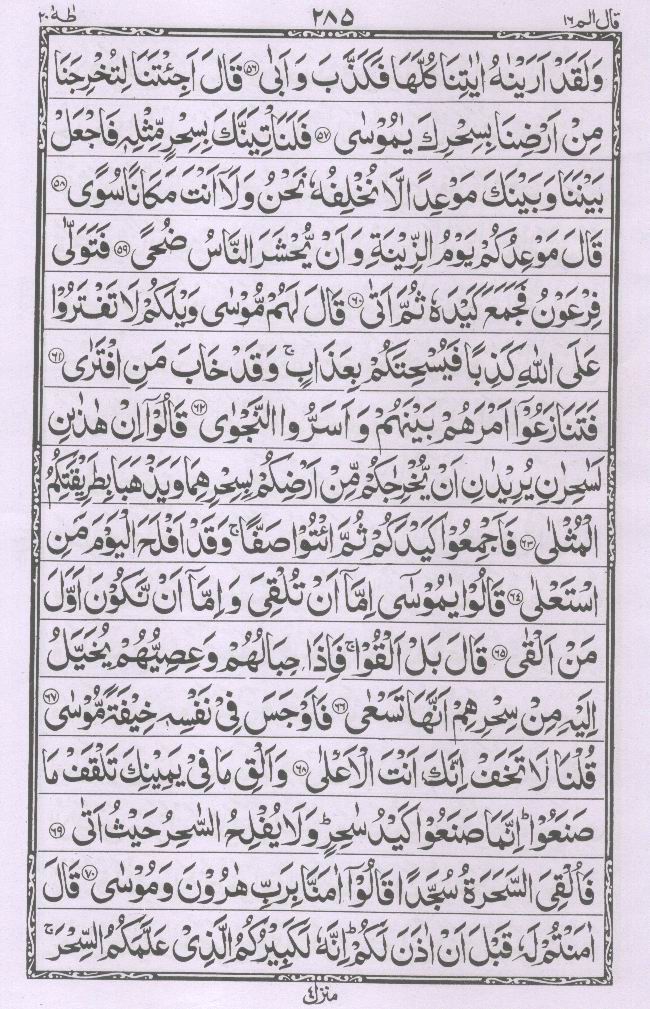 قال الم ١٦ ٢٨٥ طٰهٰ ٢٠
وَلَقَدْ اَرَيْنٰهُ اٰيٰتِنَا كُلَّهَا فَكَذَّبَ وَ اَبٰى ﴿٥٦﴾ قَالَ اَجِئْتَنَا لِتُخْرِجَنَا
مِنْ اَرْضِنَا بِسِحْرِكَ يٰمُوْسٰى ﴿٥٧﴾ فَلَنَاْتِيَنَّكَ بِسِحْرٍ مِّثْلِهٖ فَاجْعَلْ
بَيْنَنَا وَبَيْنَكَ مَوْعِدًا لَّا نُخْلِفُهٗ نَحْنُ وَلَاۤ اَنْتَ مَكَانًا سُوًى ﴿٥٨﴾
قَالَ مَوْعِدُكُمْ يَوْمُ الزِّيْنَةِ وَ اَنْ يُّحْشَرَ النَّاسُ ضُحًى ﴿٥٩﴾ فَتَوَلّٰى
فِرْعَوْنُ فَجَمَعَ كَيْدَهٗ ثُمَّ اَتٰى ﴿٦٠﴾ قَالَ لَهُمْ مُّوْسٰى وَيْلَكُمْ لَا تَفْتَرُوْا
عَلَى اللّٰهِ كَذِبًا فَيُسْحِتَكُمْ بِعَذَابٍ ۚ وَ قَدْ خَابَ مَنِ افْتَرٰى ﴿٦١﴾
فَتَنَازَعُوْۤا اَمْرَهُمْ بَيْنَهُمْ وَ اَسَرُّوا النَّجْوٰى ﴿٦٢﴾ قَالُوْۤا اِنْ هٰذٰنِ
لَسٰحِرٰنِ يُرِيْدٰنِ اَنْ يُّخْرِجٰكُمْ مِّنْ اَرْضِكُمْ بِسِحْرِهِمَا وَيَذْهَبَا بِطَرِيْقَتِكُمُ
الْمُثْلٰى ﴿٦٣﴾ فَاَجْمِعُوْا كَيْدَكُمْ ثُمَّ ائْتُوْا صَفًّا ۚ وَقَدْ اَفْلَحَ الْيَوْمَ مَنِ
اسْتَعْلٰى ﴿٦٤﴾ قَالُوْا يٰمُوْسٰۤى اِمَّاۤ اَنْ تُلْقِيَ وَ اِمَّاۤ اَنْ نَّكُوْنَ اَوَّلَ
مَنْ اَلْقٰى ﴿٦٥﴾ قَالَ بَلْ اَلْقُوْا ۚ فَاِذَا حِبَالُهُمْ وَعِصِيُّهُمْ يُخَيَّلُ
اِلَيْهِ مِنْ سِحْرِهِمْ اَنَّهَا تَسْعٰى ﴿٦٦﴾ فَاَوْجَسَ فِيْ نَفْسِهٖ خِيْفَةً مُّوْسٰى ﴿٦٧﴾
قُلْنَا لَا تَخَفْ اِنَّكَ اَنْتَ الْاَعْلٰى ﴿٦٨﴾ وَاَلْقِ مَا فِيْ يَمِيْنِكَ تَلْقَفْ مَا
صَنَعُوْا ؕ اِنَّمَا صَنَعُوْا كَيْدُ سٰحِرٍ ؕ وَلَا يُفْلِحُ السّٰحِرُ حَيْثُ اَتٰى ﴿٦٩﴾
فَاُلْقِيَ السَّحَرَةُ سُجَّدًا قَالُوْۤا اٰمَنَّا بِرَبِّ هٰرُوْنَ وَمُوْسٰى ﴿٧٠﴾ قَالَ
اٰمَنْتُمْ لَهٗ قَبْلَ اَنْ اٰذَنَ لَكُمْ ؕ اِنَّهٗ لَكَبِيْرُكُمُ الَّذِيْ عَلَّمَكُمُ السِّحْرَ ۚ
منزل ٤